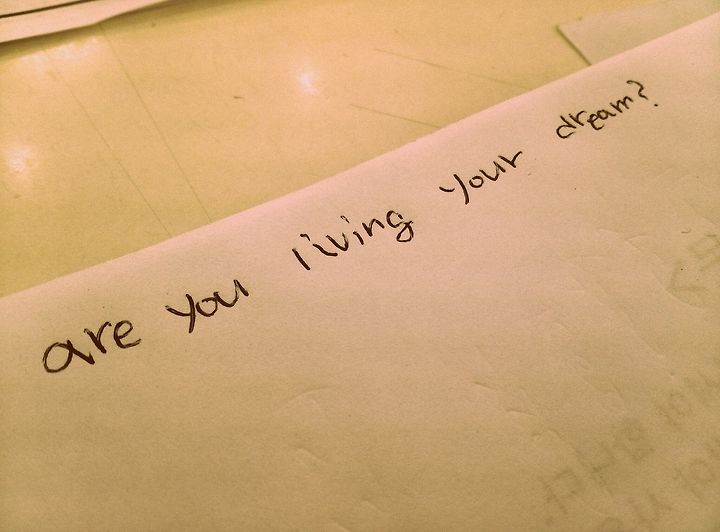 are you living your dream?